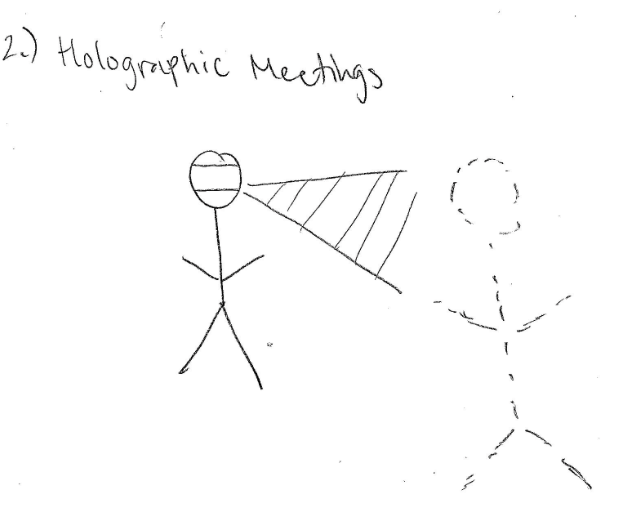 2.) Holographic Meetings